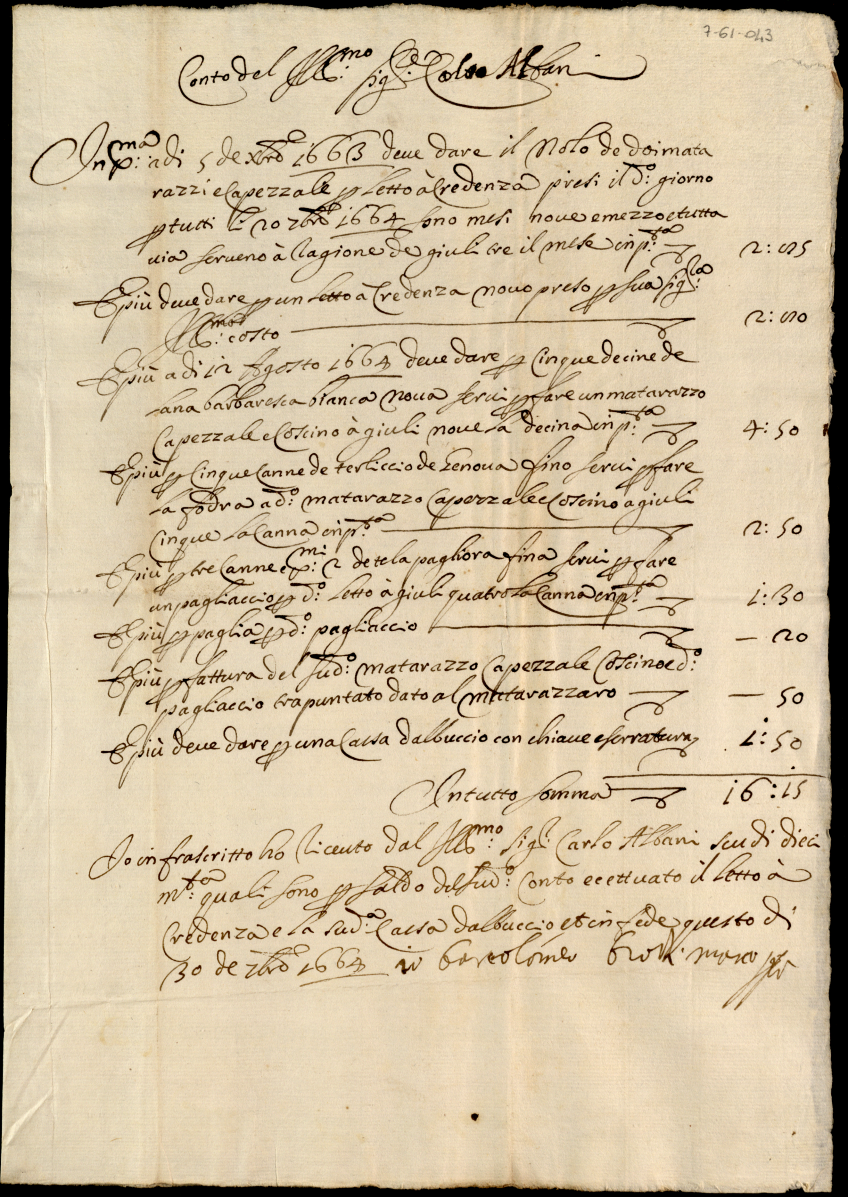 7-61-043
Conto del Ill:mo sig:re Carlo Albani
In p:ma adi 5 de Xbro 1663 deve dare il Nolo de doi mata
razzi e Capezzale p letto à Credenza presi il d:o giorno
p tutti li 20 7bro 1664 sono mesi nove e mezzo e tutta
via servono à ragione de giuli tre il mese inp:ta 2:85
E più deve dare p un letto à Credenza novo preso p sua sig:ria
Ill:ma costo 2:80
E più adi 12 Agosto 1664 deve dare p Cinque decine de
lana barbaresca bianca nova servi p fare un matarazzo
Capezzale e Coscino à giuli nove la decina inp:ta 4:50
E più p Cinque Canne de terliccio de Genova fino servi p fare
la fodra ad:o matarazzo Capezzale e Coscino à giuli
Cinque la Canna inp:ta 2:50
E più p tre Canne e p:mi 2 de tela pagliora fina servi p fare
un pagliaccio p d:o letto à giuli quatro la Canna inp:ta 1:30
E più p paglia p d:o pagliaccio — 20
E più p fattura del sud:o matarazzo Capezzale Coscino e d:o
pagliaccio trapuntato dato al matarazzaro — 50
E più deve dare p una Cassa dalbuccio con chiave e serratura 1:50
In tutto somma 16:15
Io infrascritto ho ricevuto dal Ill:mo sig:r Carlo Albani scudi dieci
m:ta quali sono p saldo del sud:o Conto eccettuato il letto à
Credenza e la sud:a Cassa dalbuccio et in fede questo di
30 de 7bro 1664 io bartolomeo mano